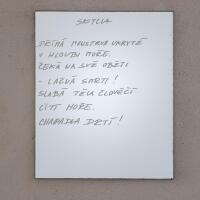 SKYLLA
DĚSNÁ MONSTRA UKRYTÉ
V HLOUBI MOŘE.
ČEKÁ NA SVÉ OBĚTI
- LAČNÁ SMRTI!
SLABÁ TĚLA ČLOVĚČÍ
CÍTÍ MOŘE.
CHARIBDA DETÍ!